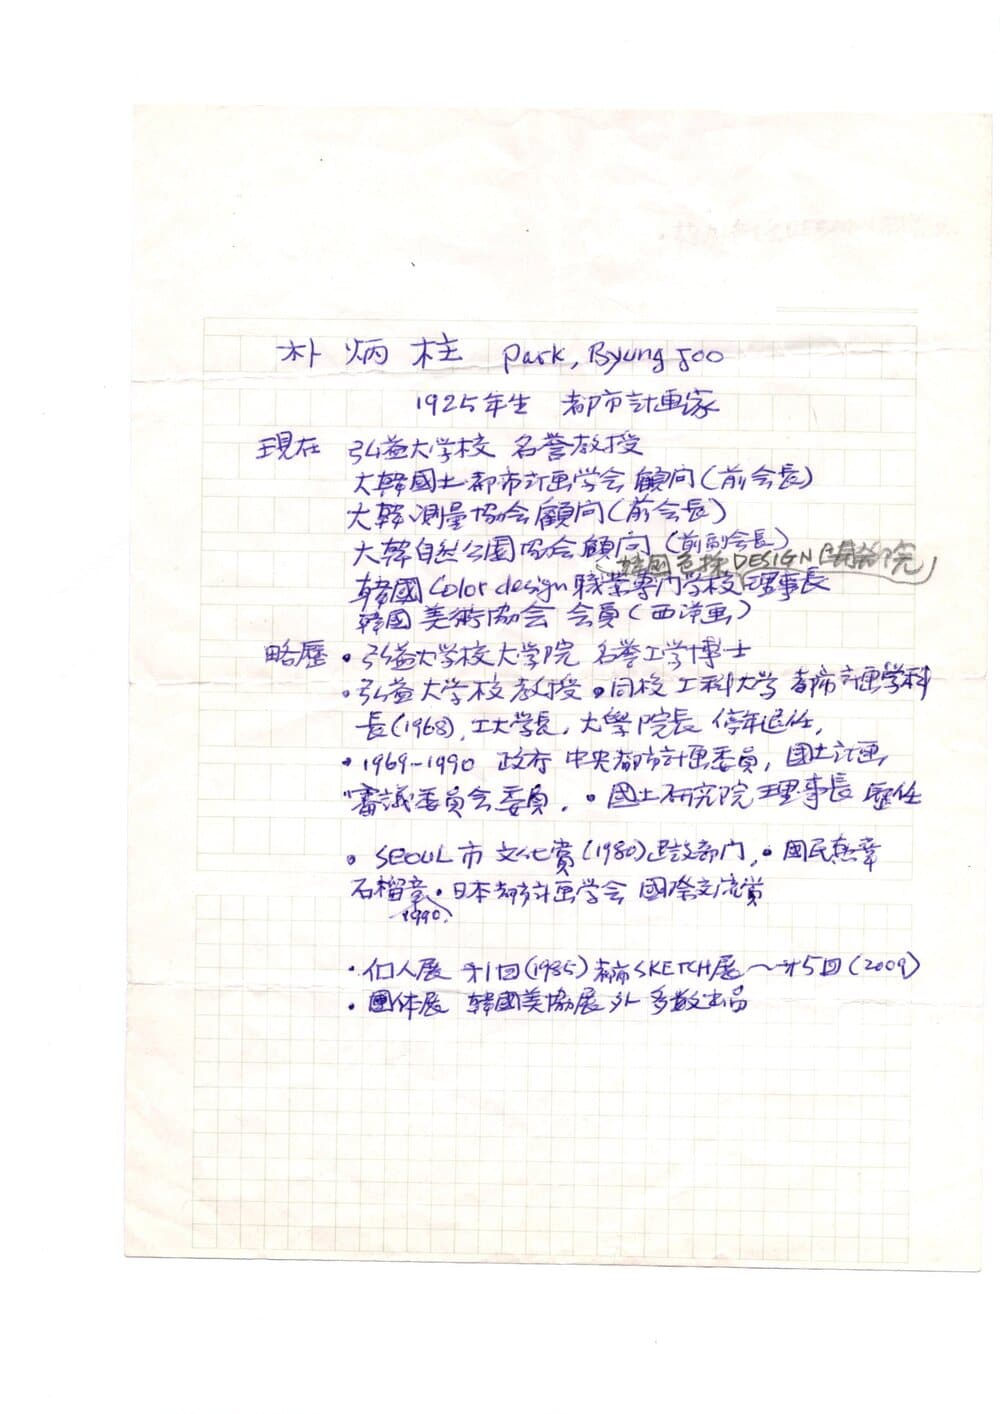 朴 炳 柱 Park, Byung Joo
1925年生 都市計画家
現在 弘益大学校 名誉教授
大韓國土都市計画学会 顧問(前会長)
大韓測量協会 顧問(前会長)
大韓自然公園協会 顧問 (前副会長)
韓国色採 DESIGN 開発院
韓國 Color design 職業専門学校 理事長
韓國 美術協会 会員(西洋画)
略歴 • 弘益大学校大学院 名誉工学博士
• 弘益大学校 教授 • 同校 工科大学 都市計画学科
長(1968), 工大学長, 大學院長 停年退任,
• 1969-1990 政府 中央都市計画委員, 國土計画
審議委員会委員, • 國土研究院 理事長 歴任
• SEOUL市 文化賞(1980)建設部门, • 國民勲章
石榴章 • 日本都市計画学会 國際交流賞
1990.
• 個人展 第1回(1985) 都市SKETCH展 〜第5回(2009)
• 團体展 韓國美協展 外 多数出品